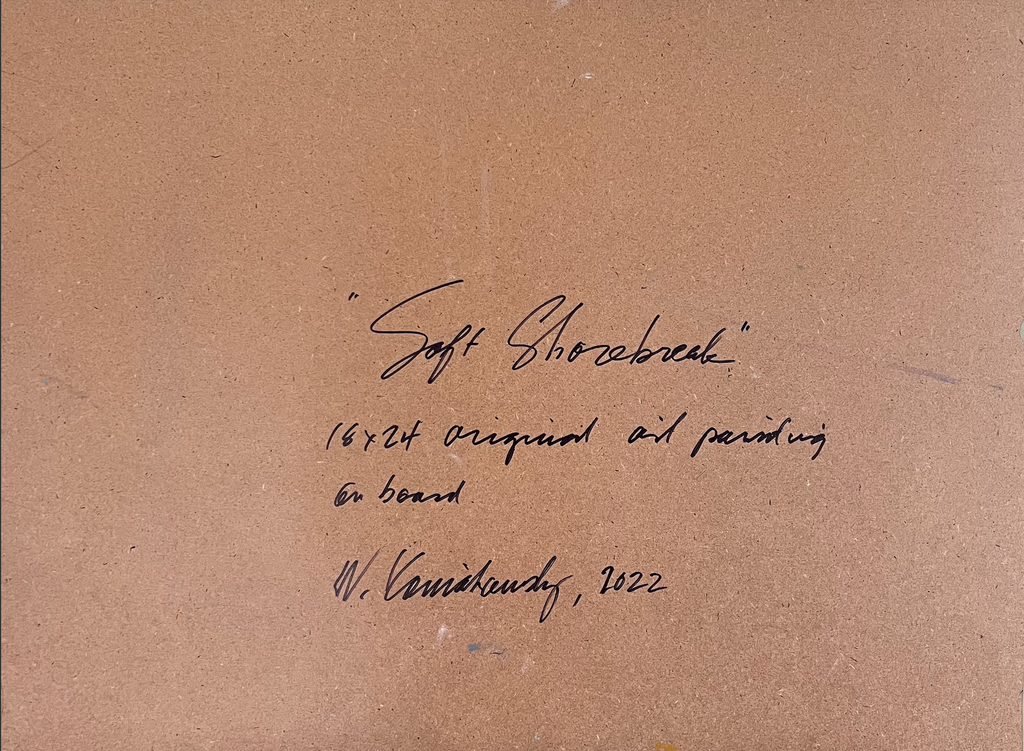 "Soft Shorebreak"
18x24 original oil painting
on board.
W. , 2022